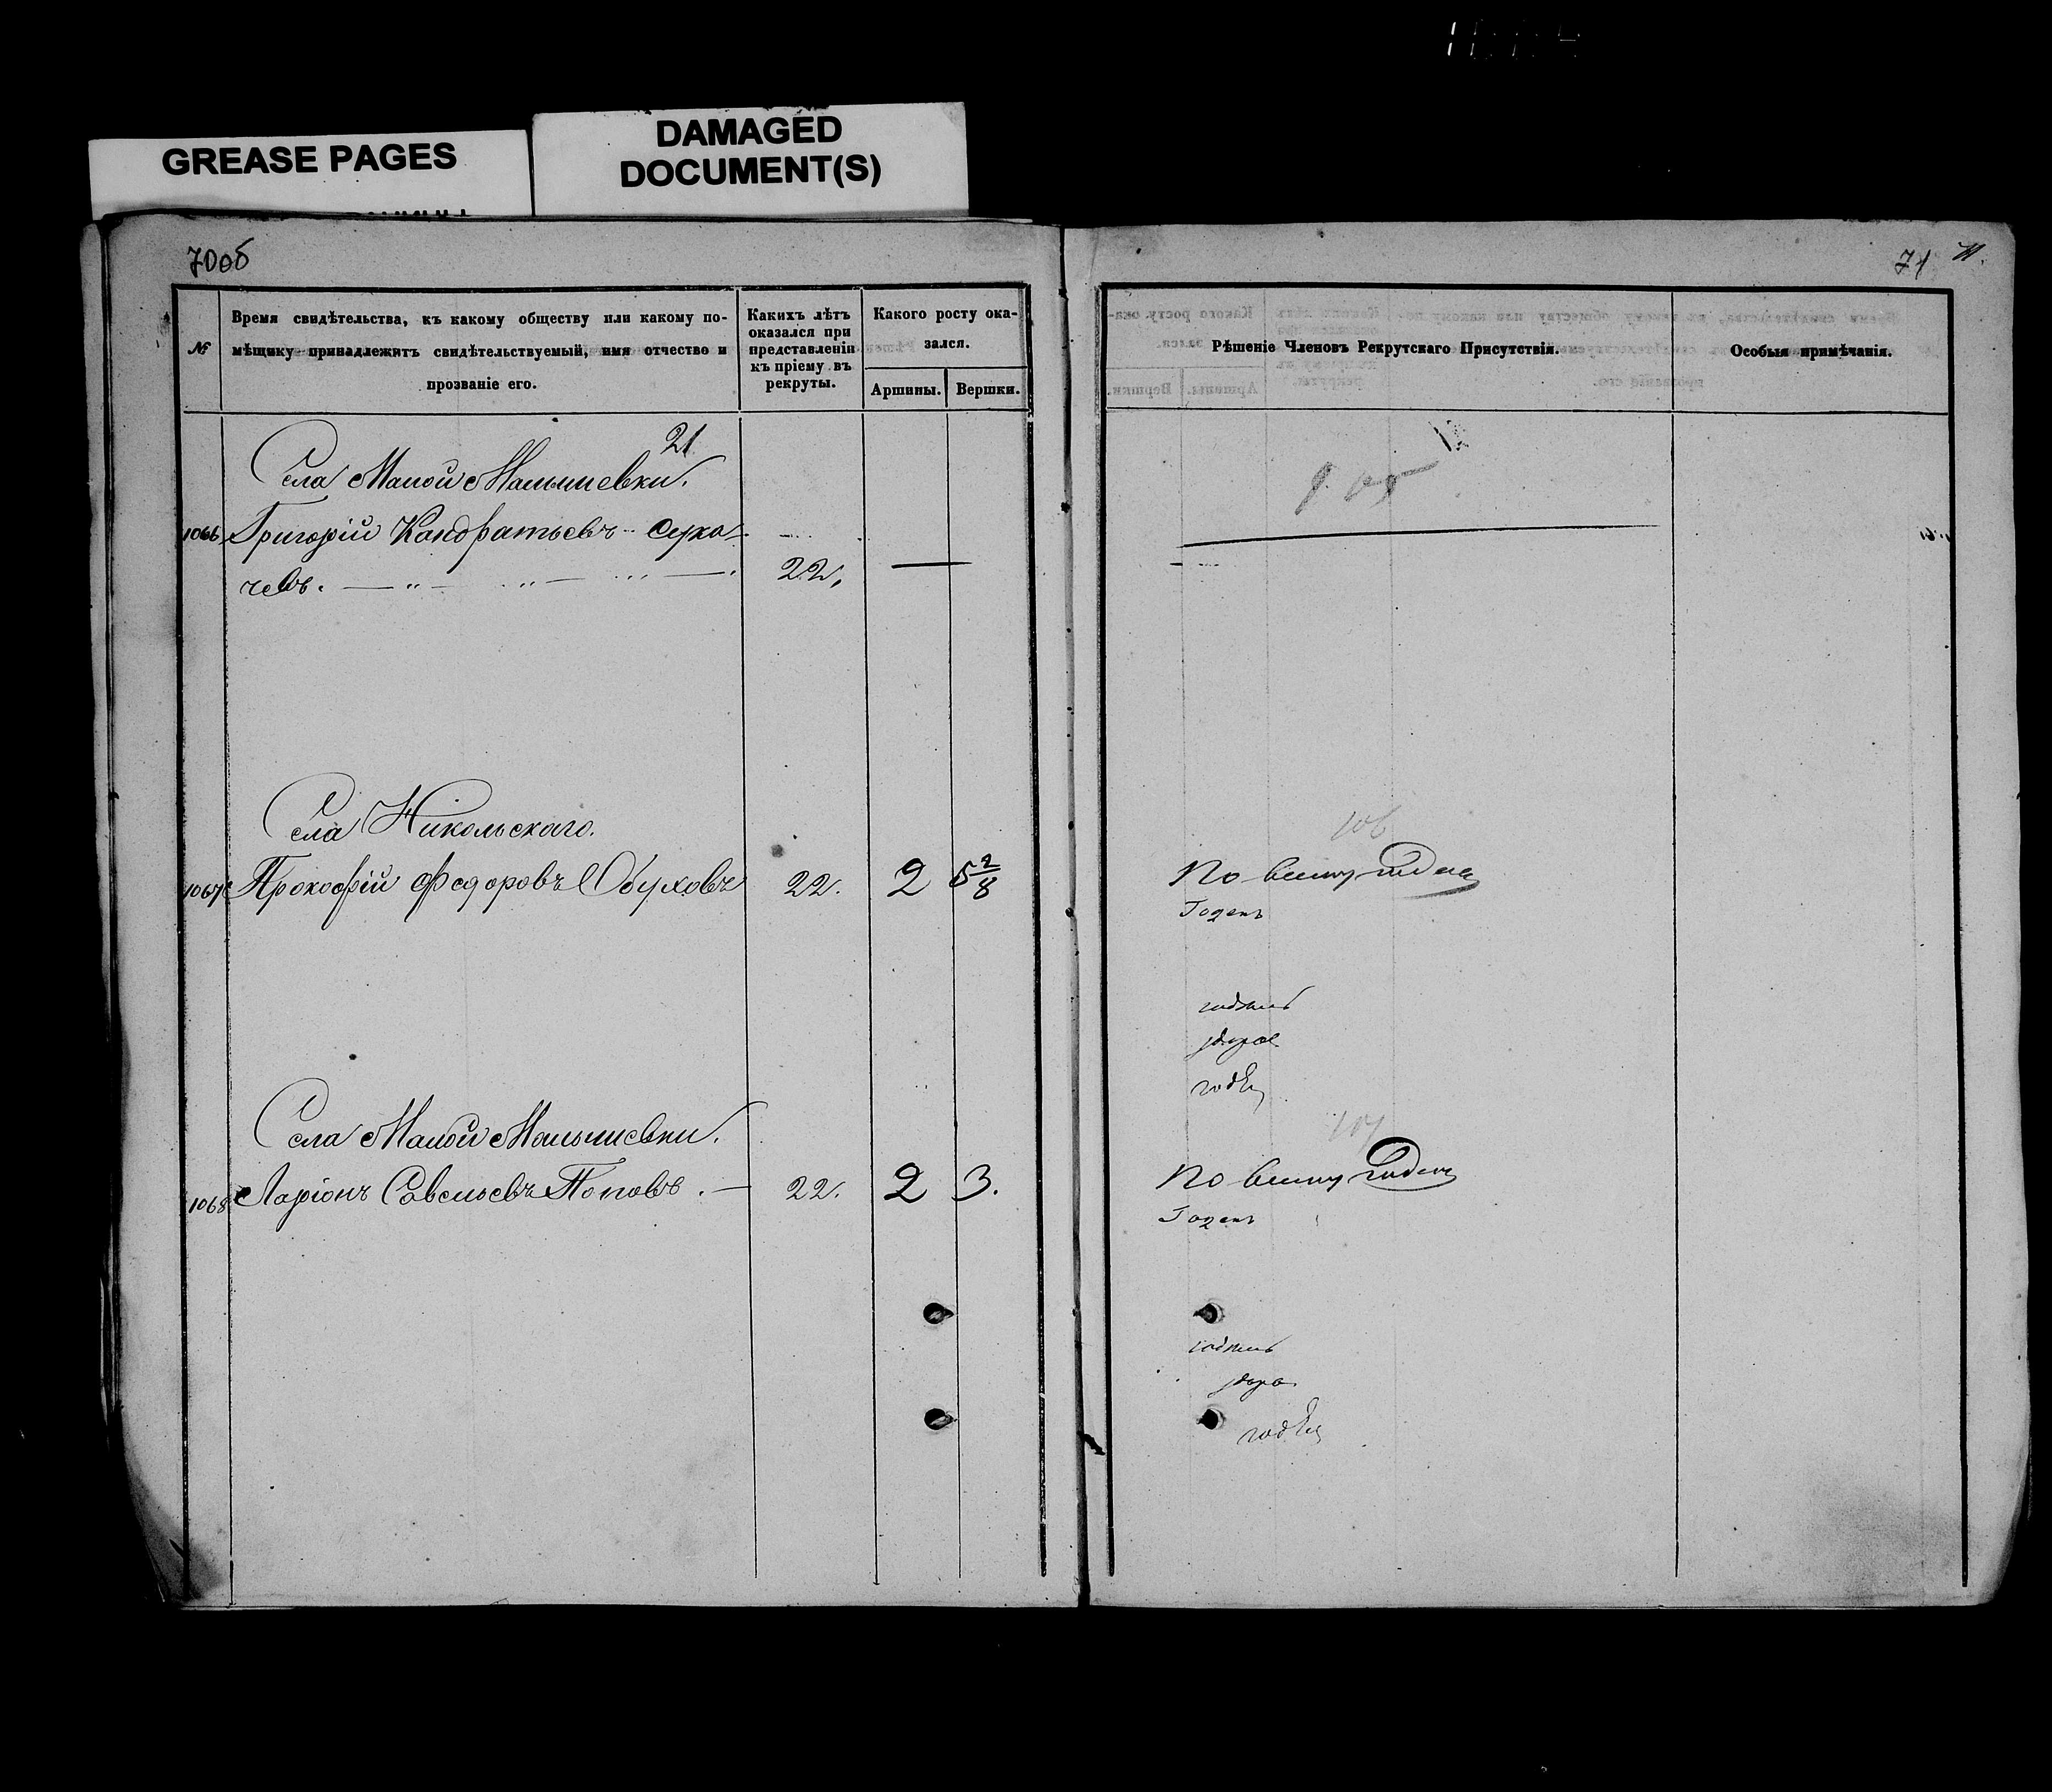 GREASE PAGES
DAMAGED
DOCUMENT(S)
70об
№
Время свидѣтельства, къ какому обществу или какому по-
мѣщику принадлежитъ свидѣтельствуемый, имя отчество и
прозваніе его.
Какихъ лѣтъ
оказался при
представленіи
къ пріему въ
рекруты.
Какого росту ока-
зался.
Аршины. Вершки.
21
Села Малой Малышевки.
1066 Григорій Кандратьевъ Сука-
чевъ. 22.
Села Никольскаго.
1067 Прокофій Федоровъ Обуховъ 22. 2 5 2/8
Села Малой Малышевки.
1068 Ларіонъ Савельевъ Поповъ. 22. 2 3.
71 71.
Рѣшеніе Членовъ Рекрутскаго Присутствія.
Особыя примѣчанія.
106
По всему годенъ
Годенъ
годенъ
здоров
годен
107
По всему годенъ
Годенъ
годенъ
здоров
годен